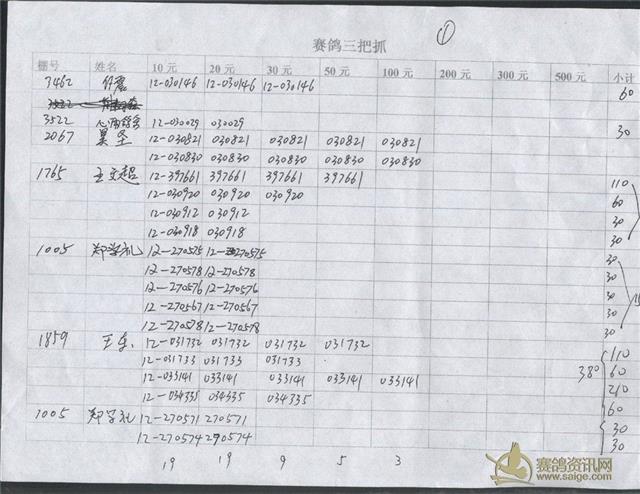 赛鸽三把抓 ①
棚号 姓名 10元 20元 30元 50元 100元 200元 300元 500元 小计
7462 12-030146 12-030146 12-030146 60
3522
3522 12-030029 030029 30
2067 昊坚 12-030821 030821 030821 030821 030821
12-030830 030830 030830 030830 030830
1765 王文超 12-397661 397661 397661 397661 110
12-030920 030920 030920 60
12-030912 030912 30
12-030918 030918 30
1005 郑学礼 12-270575 12-270575 30
12-270578 12-270578 30
12-270576 12-270576 30
12-270567 12-270567 30
12-270578 12-270578 30
1859 王东 12-031732 031732 031732 031732 110
12-031733 031733 031733 380 60
12-033141 033141 033141 033141 033141 210
12-034335 034335 034335 60
1005 郑学礼 12-270571 270571 30
12-270574 270574 30
19 19 9 5 3
赛鸽资讯网
www.saige.com